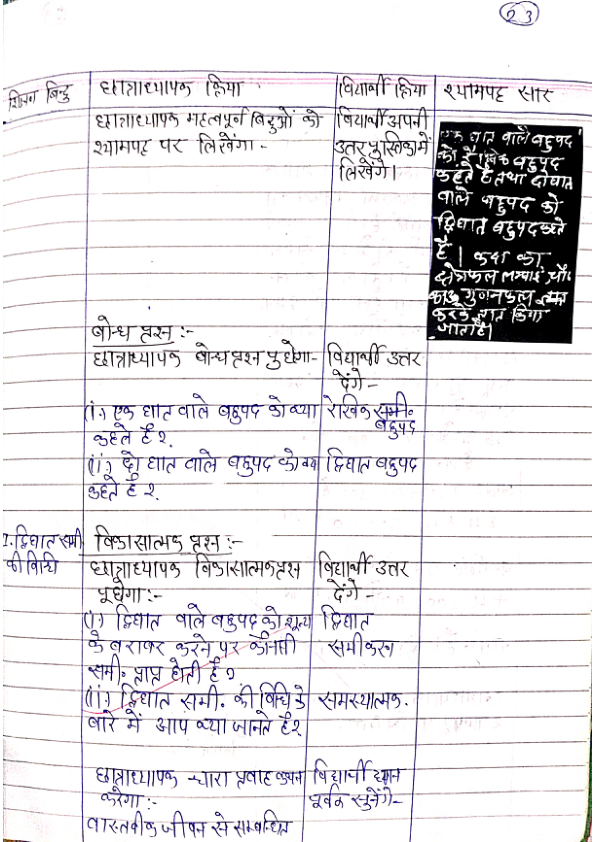 23
शिक्षण बिन्दु
छात्राध्यापक क्रिया
विद्यार्थी क्रिया
श्यामपट्ट सार
छात्राध्यापक महत्वपूर्ण बिंदुओं को
श्यामपट्ट पर लिखेंगा -
विद्यार्थी अपनी
उत्तर पुस्तिका में
लिखेंगे।
एक घात वाले बहुपद
को रैखिक बहुपद
कहते हैं तथा दो घात
वाले बहुपद को
द्विघात बहुपद कहते
है। कक्ष का
क्षेत्रफल लम्बाई चौ०
का गुणनफल
करके ज्ञात किया
जाता है।
बोध प्रश्न :-
छात्राध्यापक बोध प्रश्न पुछेगा-
विद्यार्थी उत्तर
देंगे -
(i) एक घात वाले बहुपद को क्या
कहते हैं?
रेखिक समी०
बहुपद
(ii) दो घात वाले बहुपद को क्या
कहते है?
द्विघात बहुपद
2. द्विघात समी
की विधि
विकासात्मक प्रश्न :-
छात्राध्यापक विकासात्मक प्रश्न
पूछेगा :-
विद्यार्थी उत्तर
देंगे -
(i) द्विघात वाले बहुपद को शून्य
के बराबर करने पर कौनसी
समी० प्राप्त होती है?
द्विघात
समीकरण
(ii) द्विघात समी. की विधि के
बारे में आप क्या जानते है?
समस्यात्मक.
छात्राध्यापक धारा प्रवाह कथन
करेगा :-
विद्यार्थी ध्यान
पूर्वक सुनेंगे-
वास्तवीक जीवन से सम्बन्धित